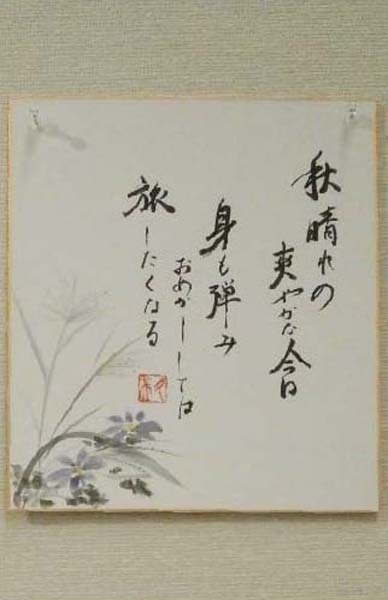 秋晴れの
爽やかな今日
身も弾み
おめかしして
旅したくなる